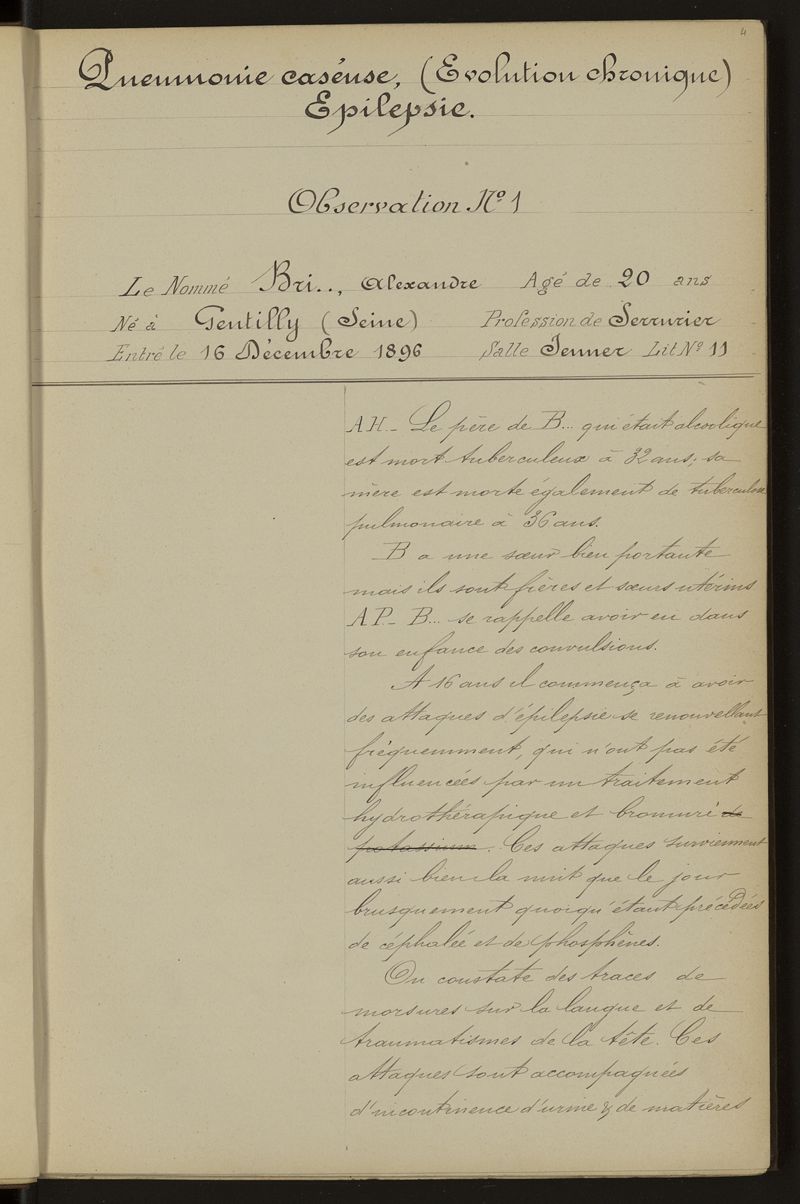 4
Pneumonie caséuse, (Evolution chronique)
Epilepsie.
Observation No 1
Le Nommé Bri.., Alexandre Agé de 20 ans
Né à Gentilly (Seine) Profession de Serrurier
Entré le 16 Décembre 1896 Salle Jenner Lit No 11
AH_ Le père de B... qui était alcoolique
est mort tuberculeux à 32 ans; sa
mère est morte également de tuberculose
pulmonaire à 36 ans.
B a une sœur bien portante
mais ils sont frères et sœurs utérins
AP_ B... se rappelle avoir eu dans
son enfance des convulsions.
A 16 ans il commença à avoir
des attaques d'épilepsie se renouvellant
fréquemment, qui n'ont pas été
influencées par un traitement
hydrothérapique et bromuré de
potassium. Ces attaques surviennent
aussi bien la nuit que le jour
brusquement quoiqu'étant précédées
de céphalée et de phosphènes.
On constate des traces de
morsures sur la langue et de
traumatismes de la tête. Ces
attaques sont accompagnées
d'incontinence d'urine & de matières